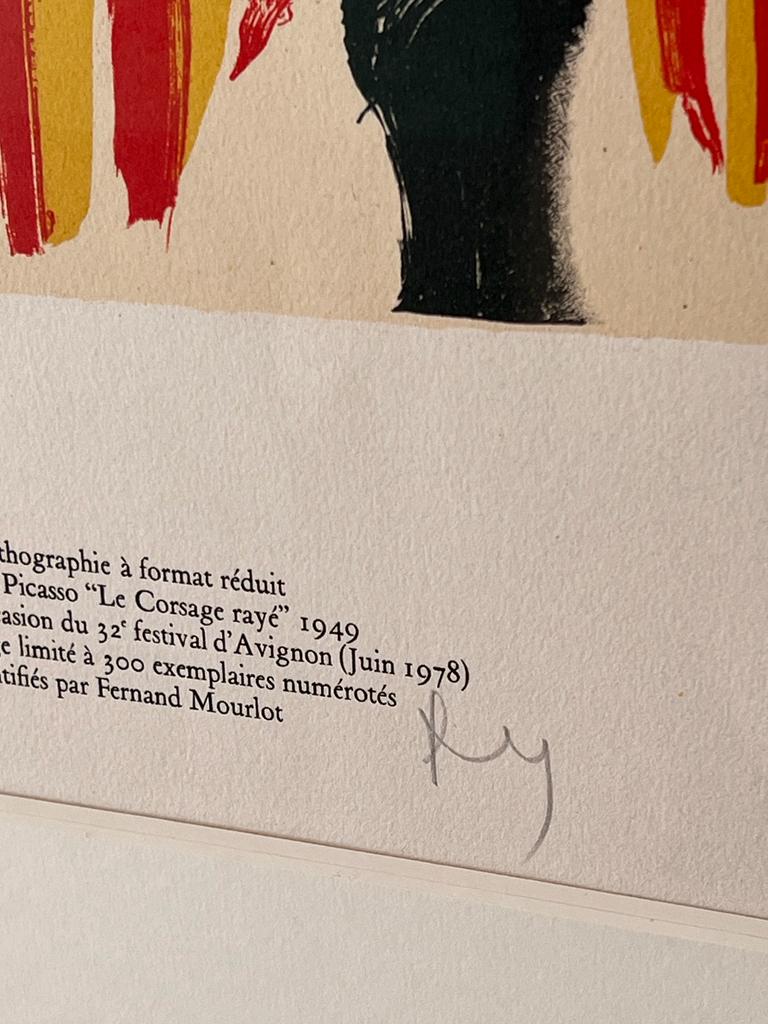 thographie à format réduit
Picasso “Le Corsage rayé” 1949
asion du 32ᵉ festival d’Avignon (Juin 1978)
e limité à 300 exemplaires numérotés
tifiés par Fernand Mourlot